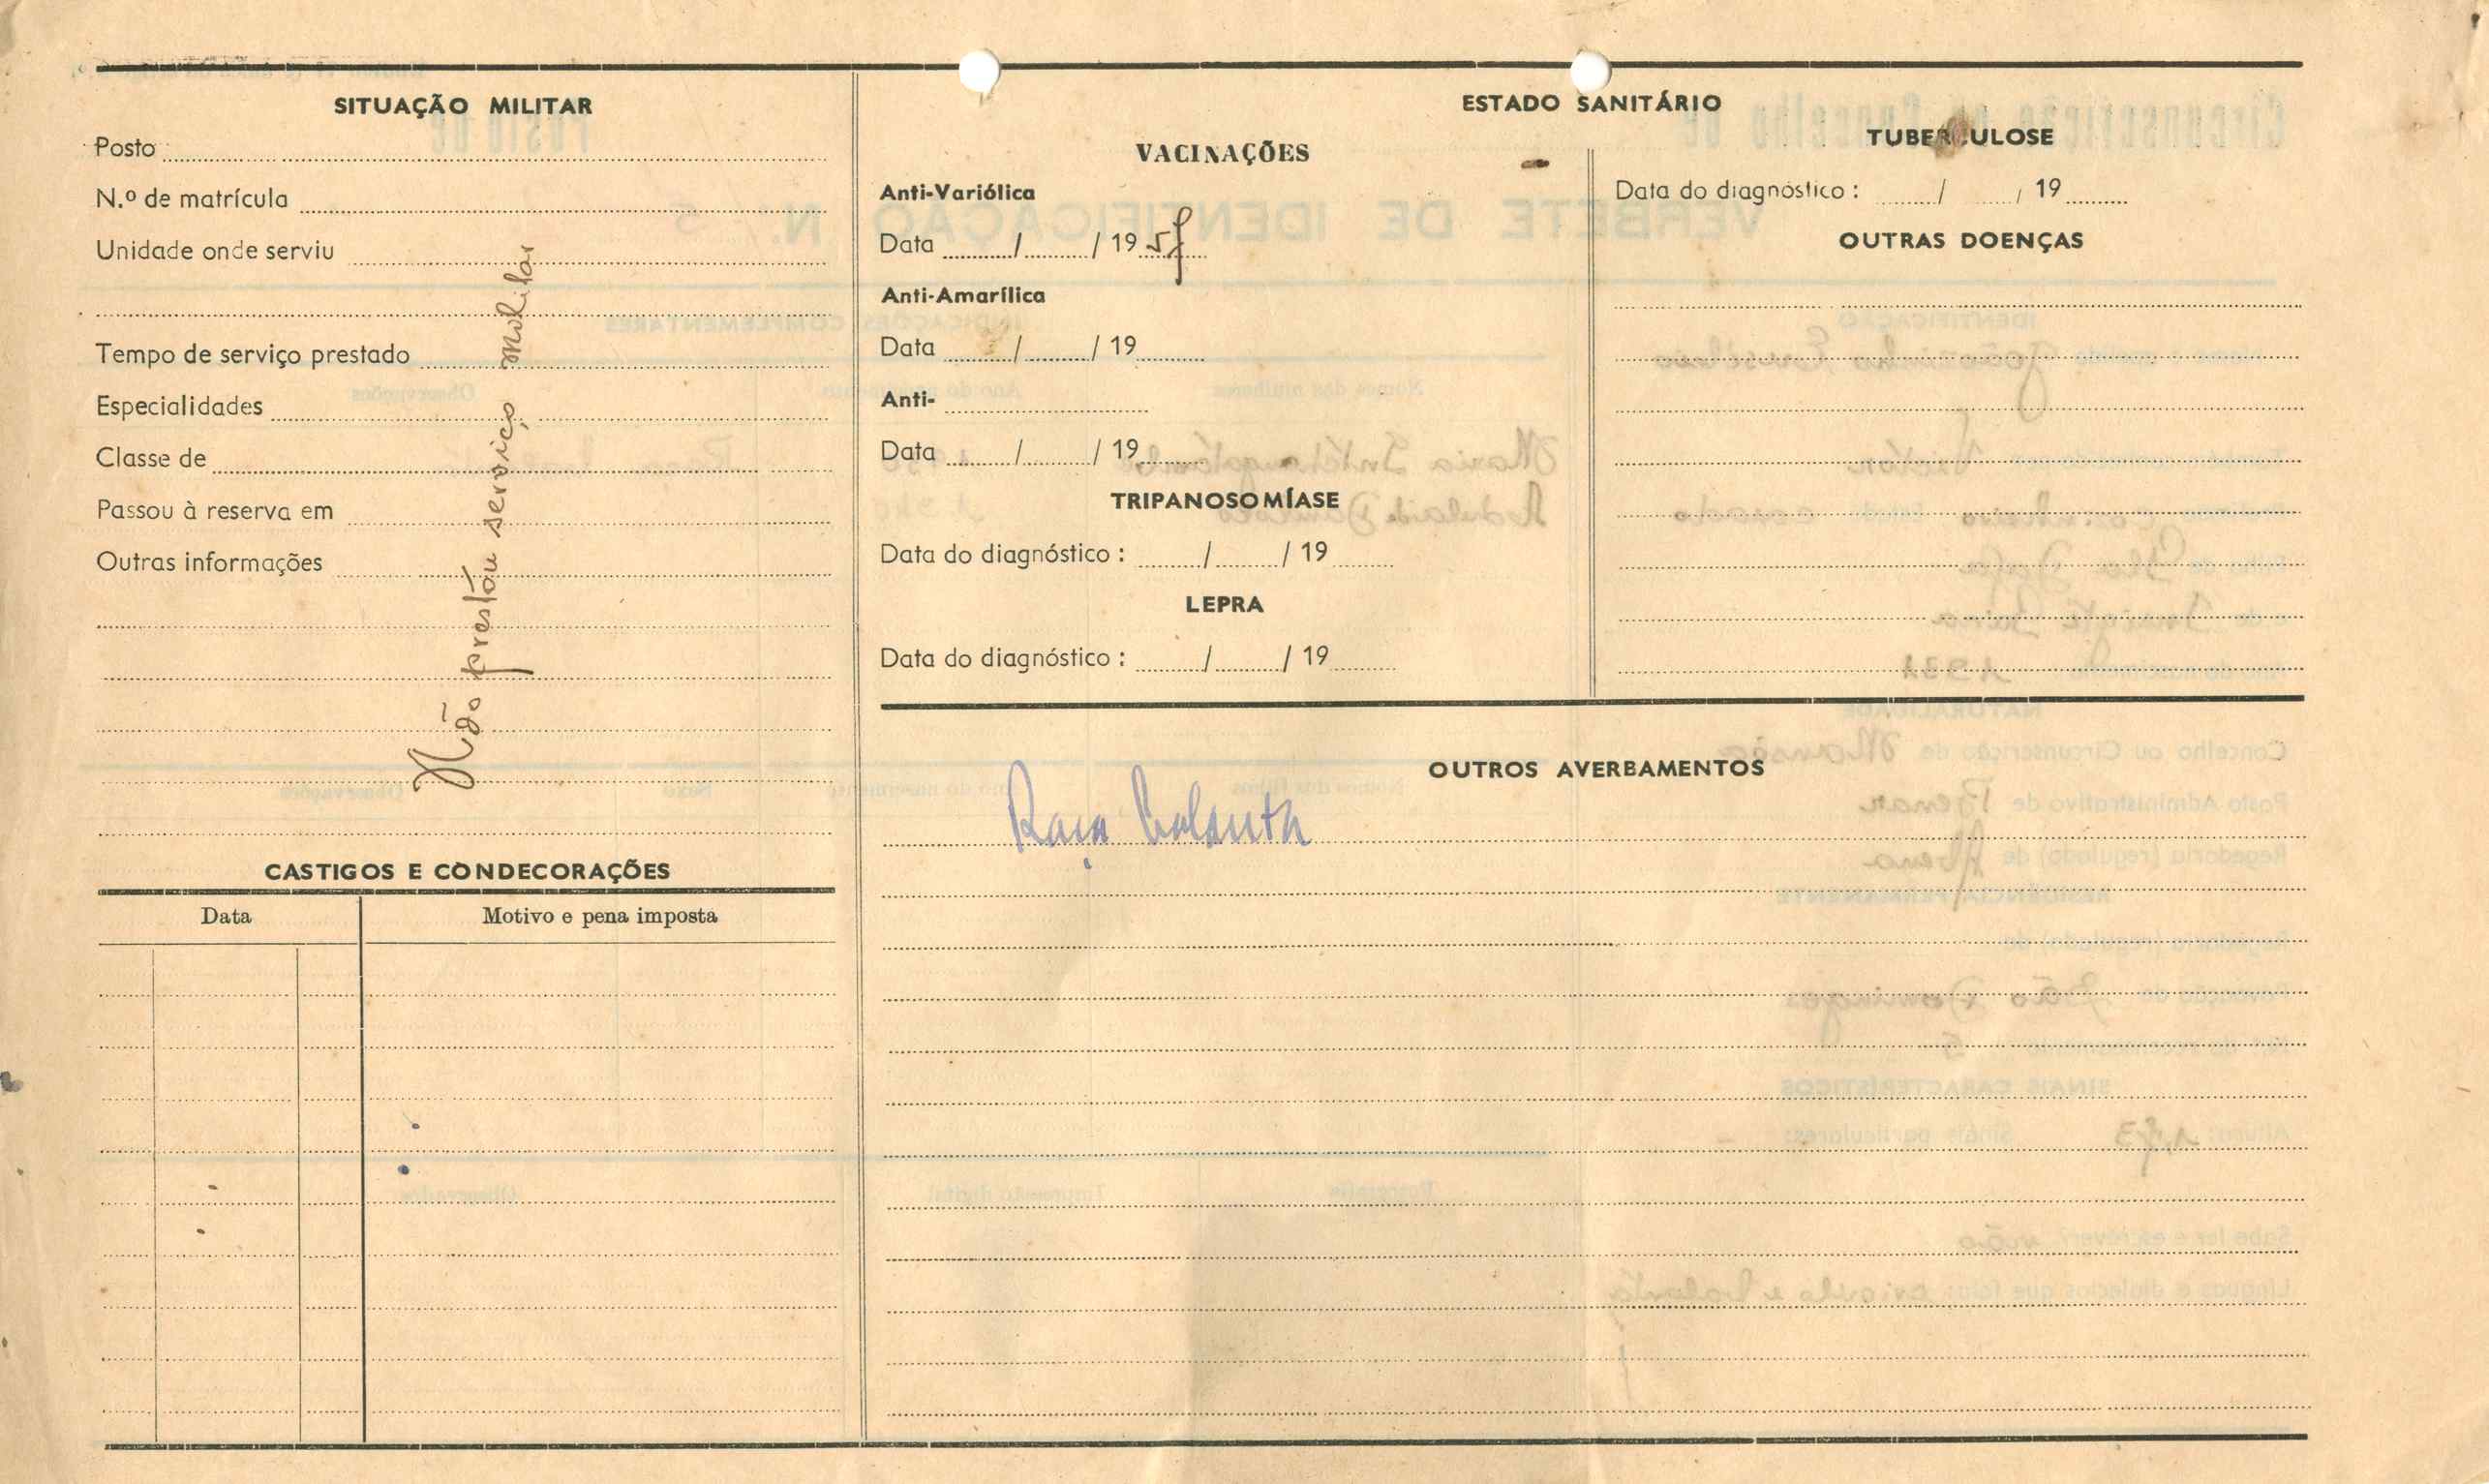 SITUAÇÃO MILITAR
Posto
N.º de matrícula
Unidade onde serviu
Tempo de serviço prestado
Especialidades
Classe de
Passou à reserva em
Outras informações
Não prestou serviço militar
CASTIGOS E CONDECORAÇÕES
Data Motivo e pena imposta
ESTADO SANITÁRIO
VACINAÇÕES
Anti-Variólica
Data / / 19 57
Anti-Amarílica
Data / / 19
Anti-
Data / / 19
TRIPANOSOMÍASE
Data do diagnóstico : / / 19
LEPRA
Data do diagnóstico : / / 19
TUBERCULOSE
Data do diagnóstico : / / 19
OUTRAS DOENÇAS
OUTROS AVERBAMENTOS
Raça balanta